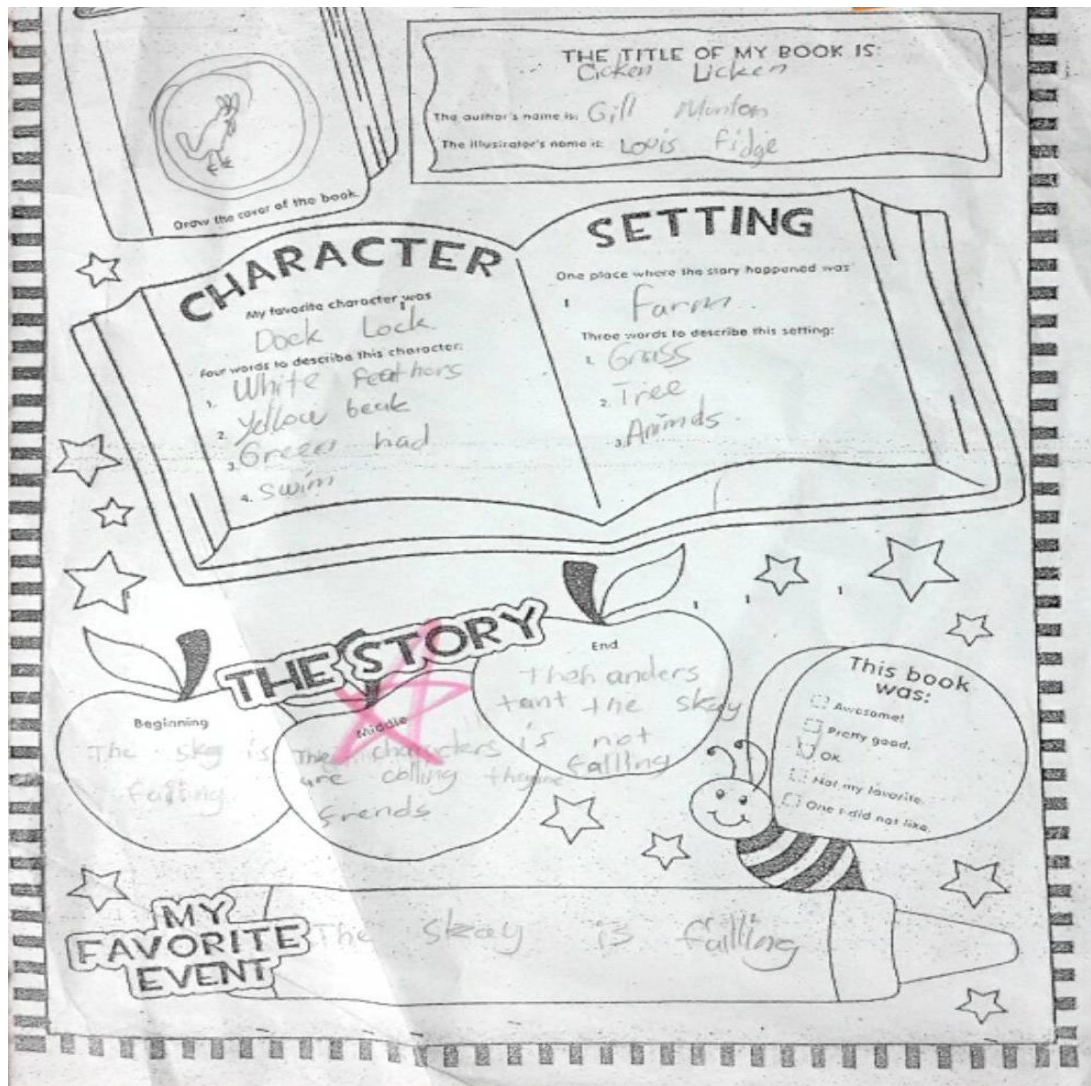 THE TITLE OF MY BOOK IS:
Cicken Licken
The author's name is: Gill Munton
The illustrator's name is: Louis Fidge
Draw the cover of the book.
CHARACTER
My favorite character was
Dock Lock
Four words to describe this character:
1. White Feathers
2. Yellow beak
3. Green had
4. Swim
SETTING
One place where the story happened was
Farm
Three words to describe this setting:
1. Grass
2. Tree
3. Animals
THE STORY
Beginning
The skey is
falling
Middle
The characters
are colling
frends
End
anders
tant the skey
is not
falling
This book
was:
Awesome!
Pretty good.
OK
Not my favorite.
One I did not like.
MY
FAVORITE
EVENT
The skay is failling